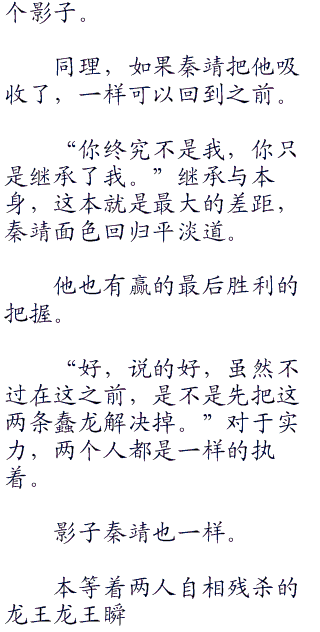 个影子。
同理，如果秦靖把他吸
收了，一样可以回到之前。
“你终究不是我，你只
是继承了我。”继承与本
身，这本就是最大的差距，
秦靖面色回归平淡道。
他也有赢的最后胜利的
把握。
“好，说的好，虽然不
过在这之前，是不是先把这
两条蠢龙解决掉。”对于实
力，两个人都是一样的执
着。
影子秦靖也一样。
本等着两人自相残杀的
龙王龙王瞬